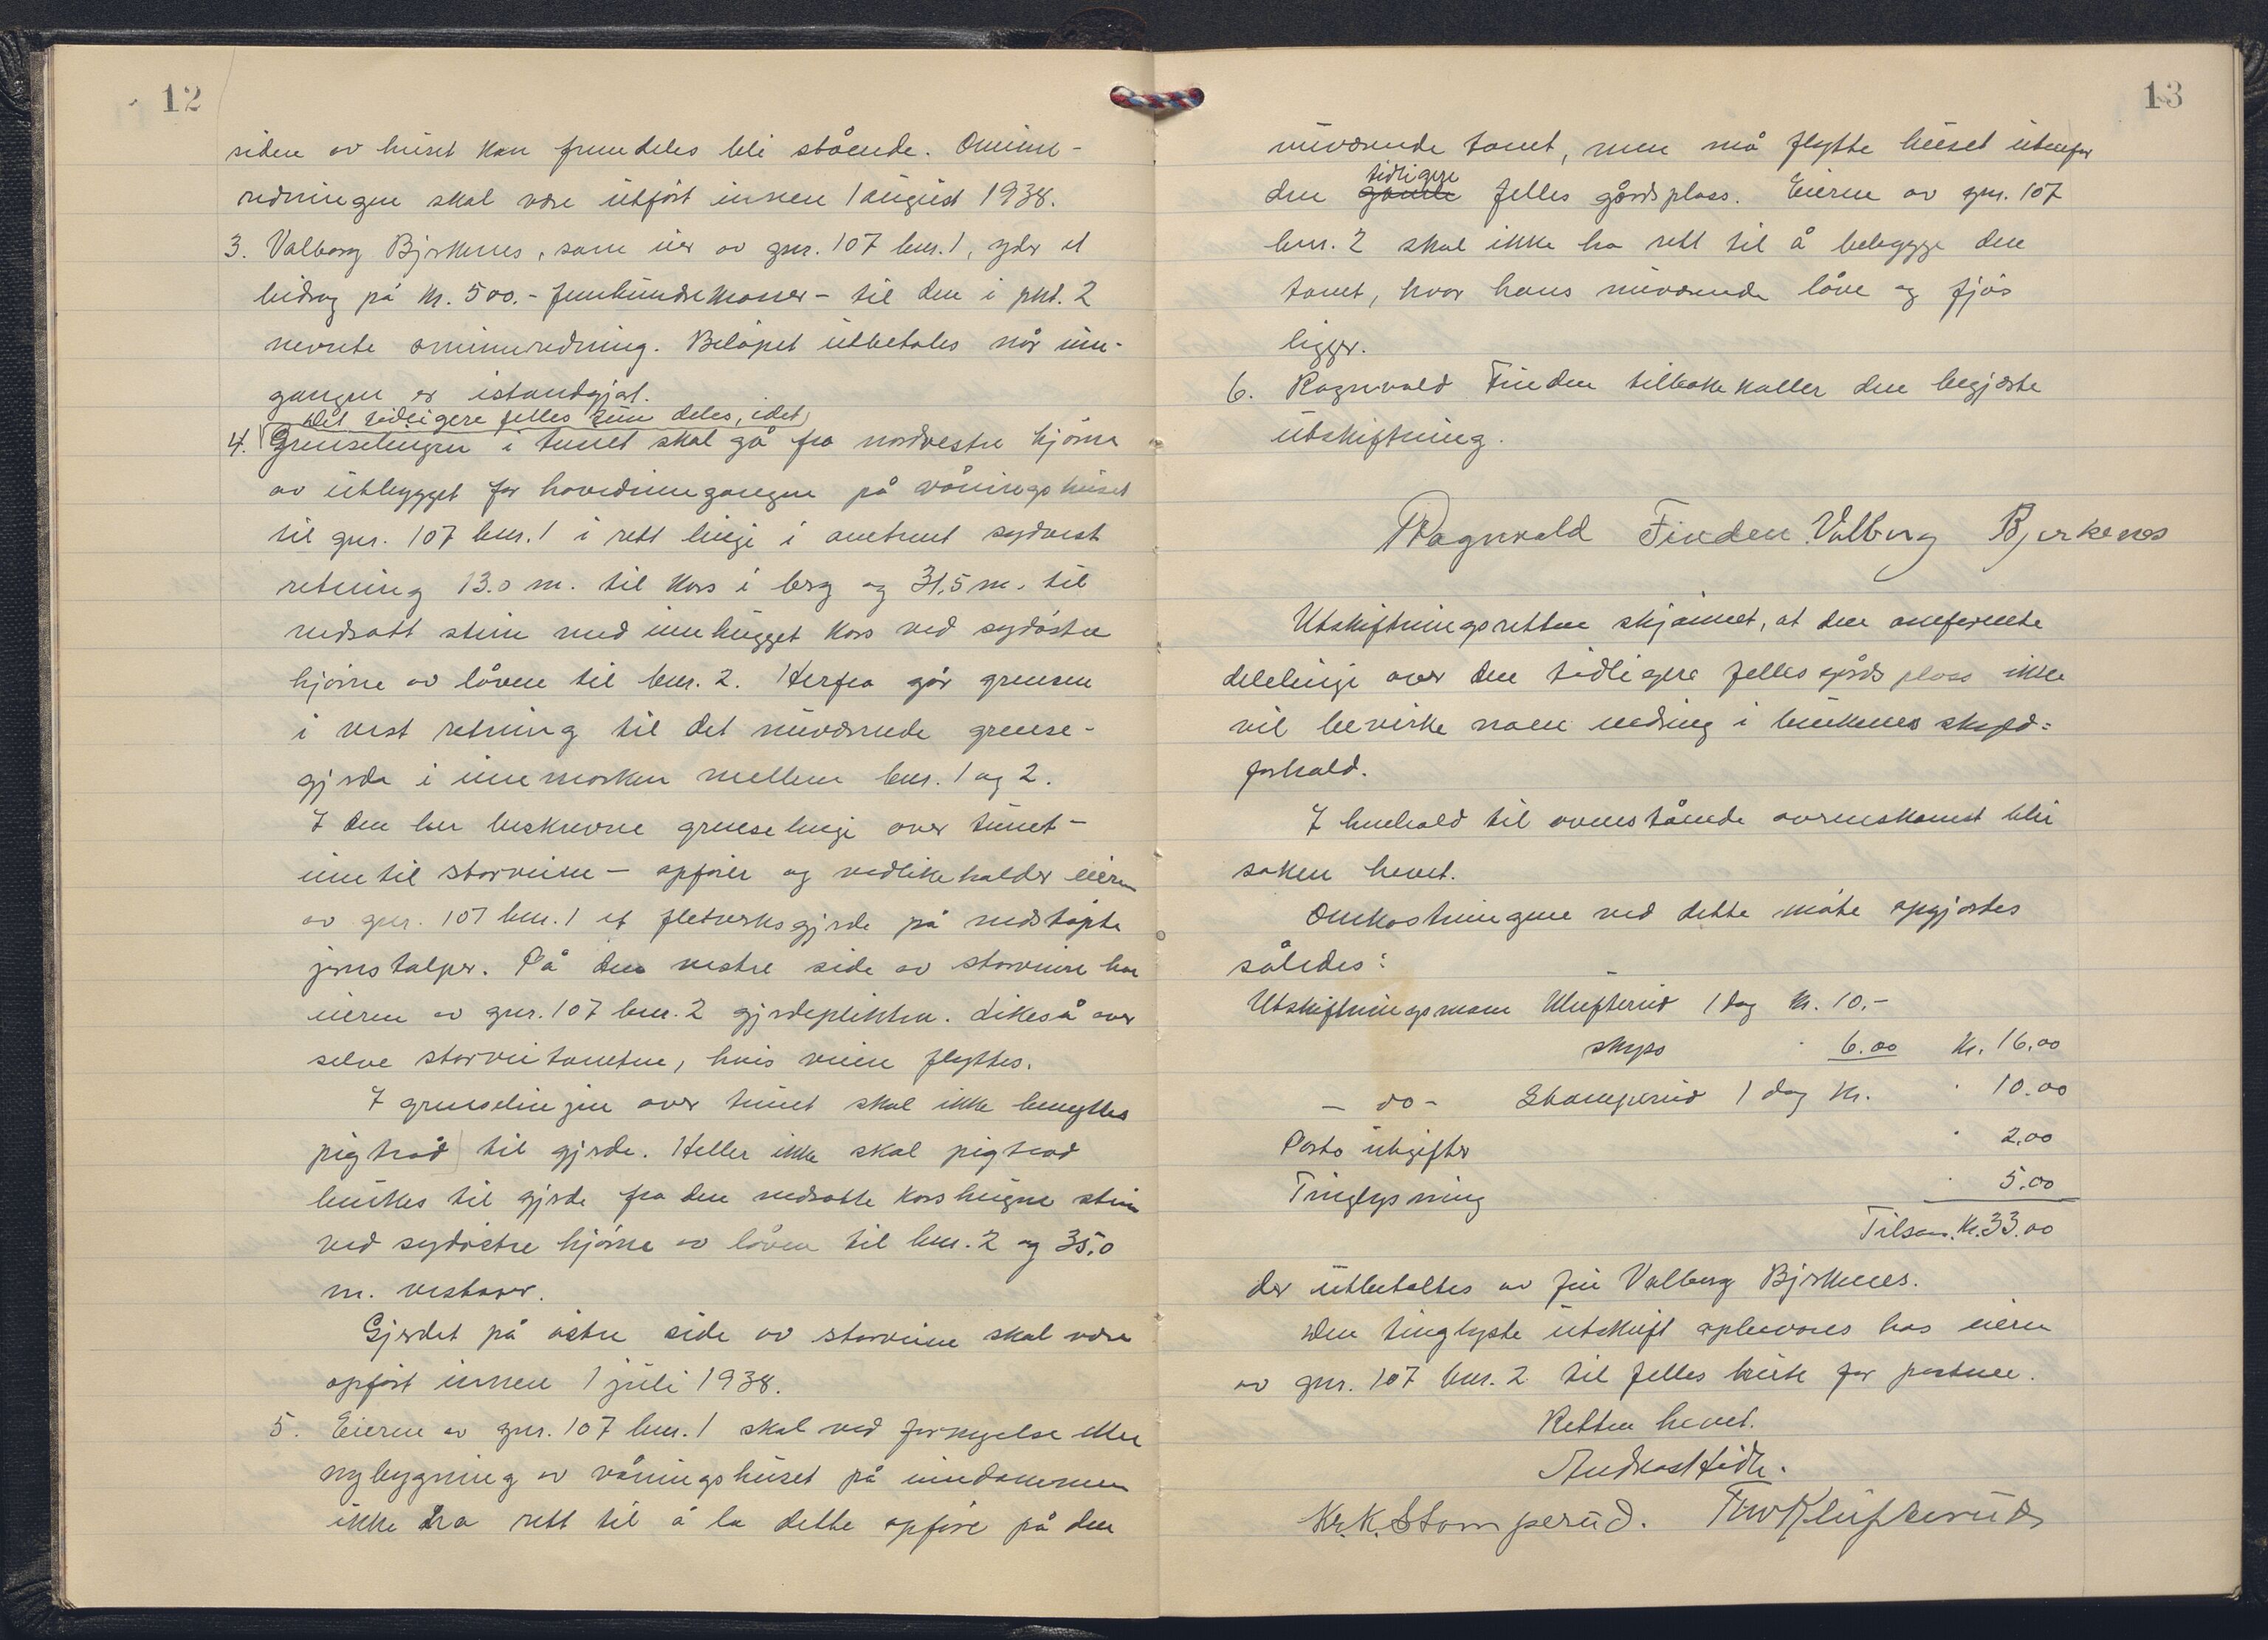 12
siden av huset kan fremdeles bli stående. Ominn-
redningen skal være utført innen 1 august 1938.
3. Valborg Bjerkenes, som eier av gnr. 107 bnr. 1, yder et
bidrag på kr. 500.- femhundrekroner - til den i pkt. 2
nevnte ominnredning. Beløpet utbetales når inn-
gangen er istandgjort.
Det tidligere felles tun deles, idet
4. Grenselinjen i tunet skal gå fra nordvestre hjørne
av utbygget for hovedinngangen på våningshuset
til gnr. 107 bnr. 1 i rett linje i omtrent sydvest
retning 13.0 m. til kors i berg og 31,5 m. til
nedsatt stein med innhugget kors ved sydøstre
hjørne av låven til bnr. 2. Herfra går grensen
i vest retning til det nuværende grense-
gjerde i innmarken mellem bnr. 1 og 2.
I den her beskrevne grenselinje over tunet -
inn til storveien - opfører og vedlikeholder eieren
av gnr. 107 bnr. 1 et fletverksgjerde på nedstøpte
jernstolper. På den vestre side av storveien har
eieren av gnr. 107 bnr. 2 gjerdeplikten. Likeså over
selve storveitomten, hvis veien flyttes.
I grenselinjen over tunet skal ikke benyttes
pigtråd til gjerde. Heller ikke skal pigtråd
brukes til gjerde fra den nedsatte korshugne stein
ved sydøstre hjørne av låven til bnr. 2 og 35,0
m. vestover.
Gjerdet på østre side av storveien skal være
opført innen 1 juli 1938.
5. Eieren av gnr. 107 bnr. 1 skal ved fornyelse eller
nybygning av våningshuset på eiendommen
ikke ha rett til å la dette opføre på den
13
nuværende tomt, men må flytte huset utenfor
tidligere
den gamle felles gårdsplass. Eieren av gnr. 107
bnr. 2 skal ikke ha rett til å bebygge den
tomt, hvor hans nuværende låve og fjøs
ligger.
6. Ragnvald Finden tilbakekaller den begjærte
utskiftning.
Ragnvald Finden Valborg Bjerkenes
Utskiftningsretten skjønnet, at den omforente
delelinje over den tidligere felles gårdsplass ikke
vil bevirke noen endring i brukenes skyld-
forhold.
I henhold til ovenstående overenskomst blir
saken hevet.
Omkostningene ved dette møte opgjordes
således:
Utskiftningsmann Klufterud 1 dag kr. 10.-
skyss " 6.00 kr. 16.00
- do - Stomperud 1 dag kr. " 10.00
Porto utgifter " 2.00
Tinglysning " 5.00
Tilsam. kr. 33.00
der utbetaltes av fru Valborg Bjerkenes.
Den tinglyste utskrift opbevares hos eieren
av gnr. 107 bnr. 2 til felles bruk for partene.
Retten hevet.
Kr. K. Stomperud. Klufterud